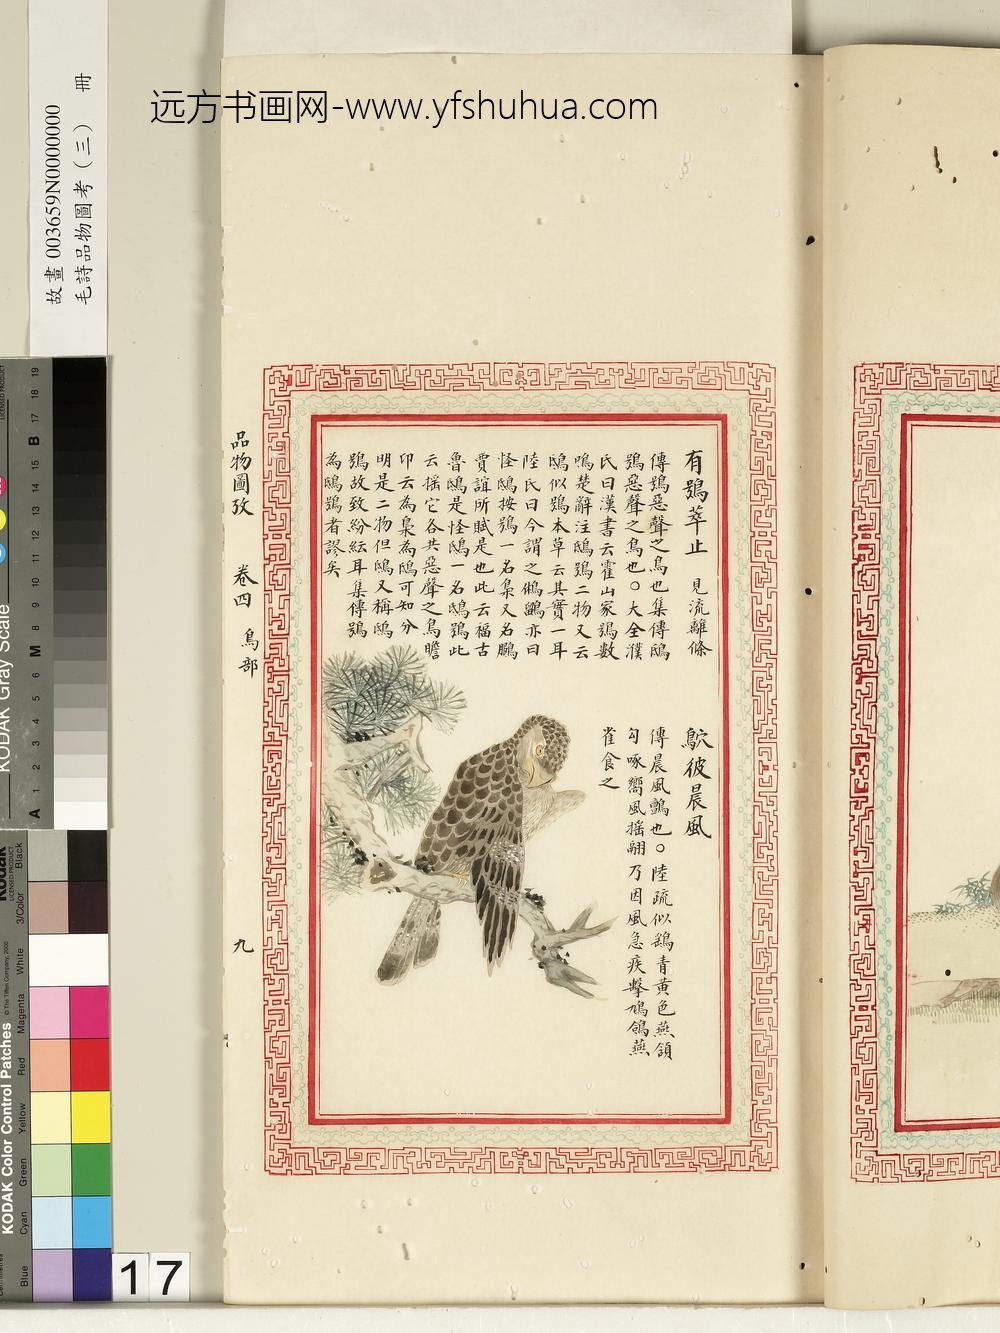 远方书画网-www.yfshuhua.com
故畫 003659N0000000
毛詩品物圖考（三） 冊
有鴞萃止 見流離條
傳鴞惡聲之鳥也集傳鴟
鴞惡聲之鳥也○大全濮
氏曰漢書云霍山家鴞數
鳴楚辭注鴟鴞二物又云
鴟似鴞本草云其實一耳
陸氏曰今謂之鵂鶹亦曰
怪鴟按鴞一名梟又名鵩
賈誼所賦是也此云福古
魯鴟是怪鴟一名鴟鴞此
云搖它各共惡聲之鳥瞻
卬云為梟為鴟可知分
明是二物但鴟又稱鴟
鴞故致紛紜耳集傳鴞
為鴟鴞者謬矣
鴥彼晨風
傳晨風鸇也○陸疏似鷂青黃色燕頷
勾啄嚮風搖翮乃因風急疾擊鳩鴿燕
雀食之
品物圖攷 卷四 鳥部 九
KODAK Gray Scale
A 1 2 3 4 5 6 M 8 9 10 11 12 13 14 15 B 17 18 19
Kodak
LICENSED PRODUCT
KODAK Color Control Patches
© The Tiffen Company, 2000
Blue Cyan Green Yellow Red Magenta White 3/Color Black
17